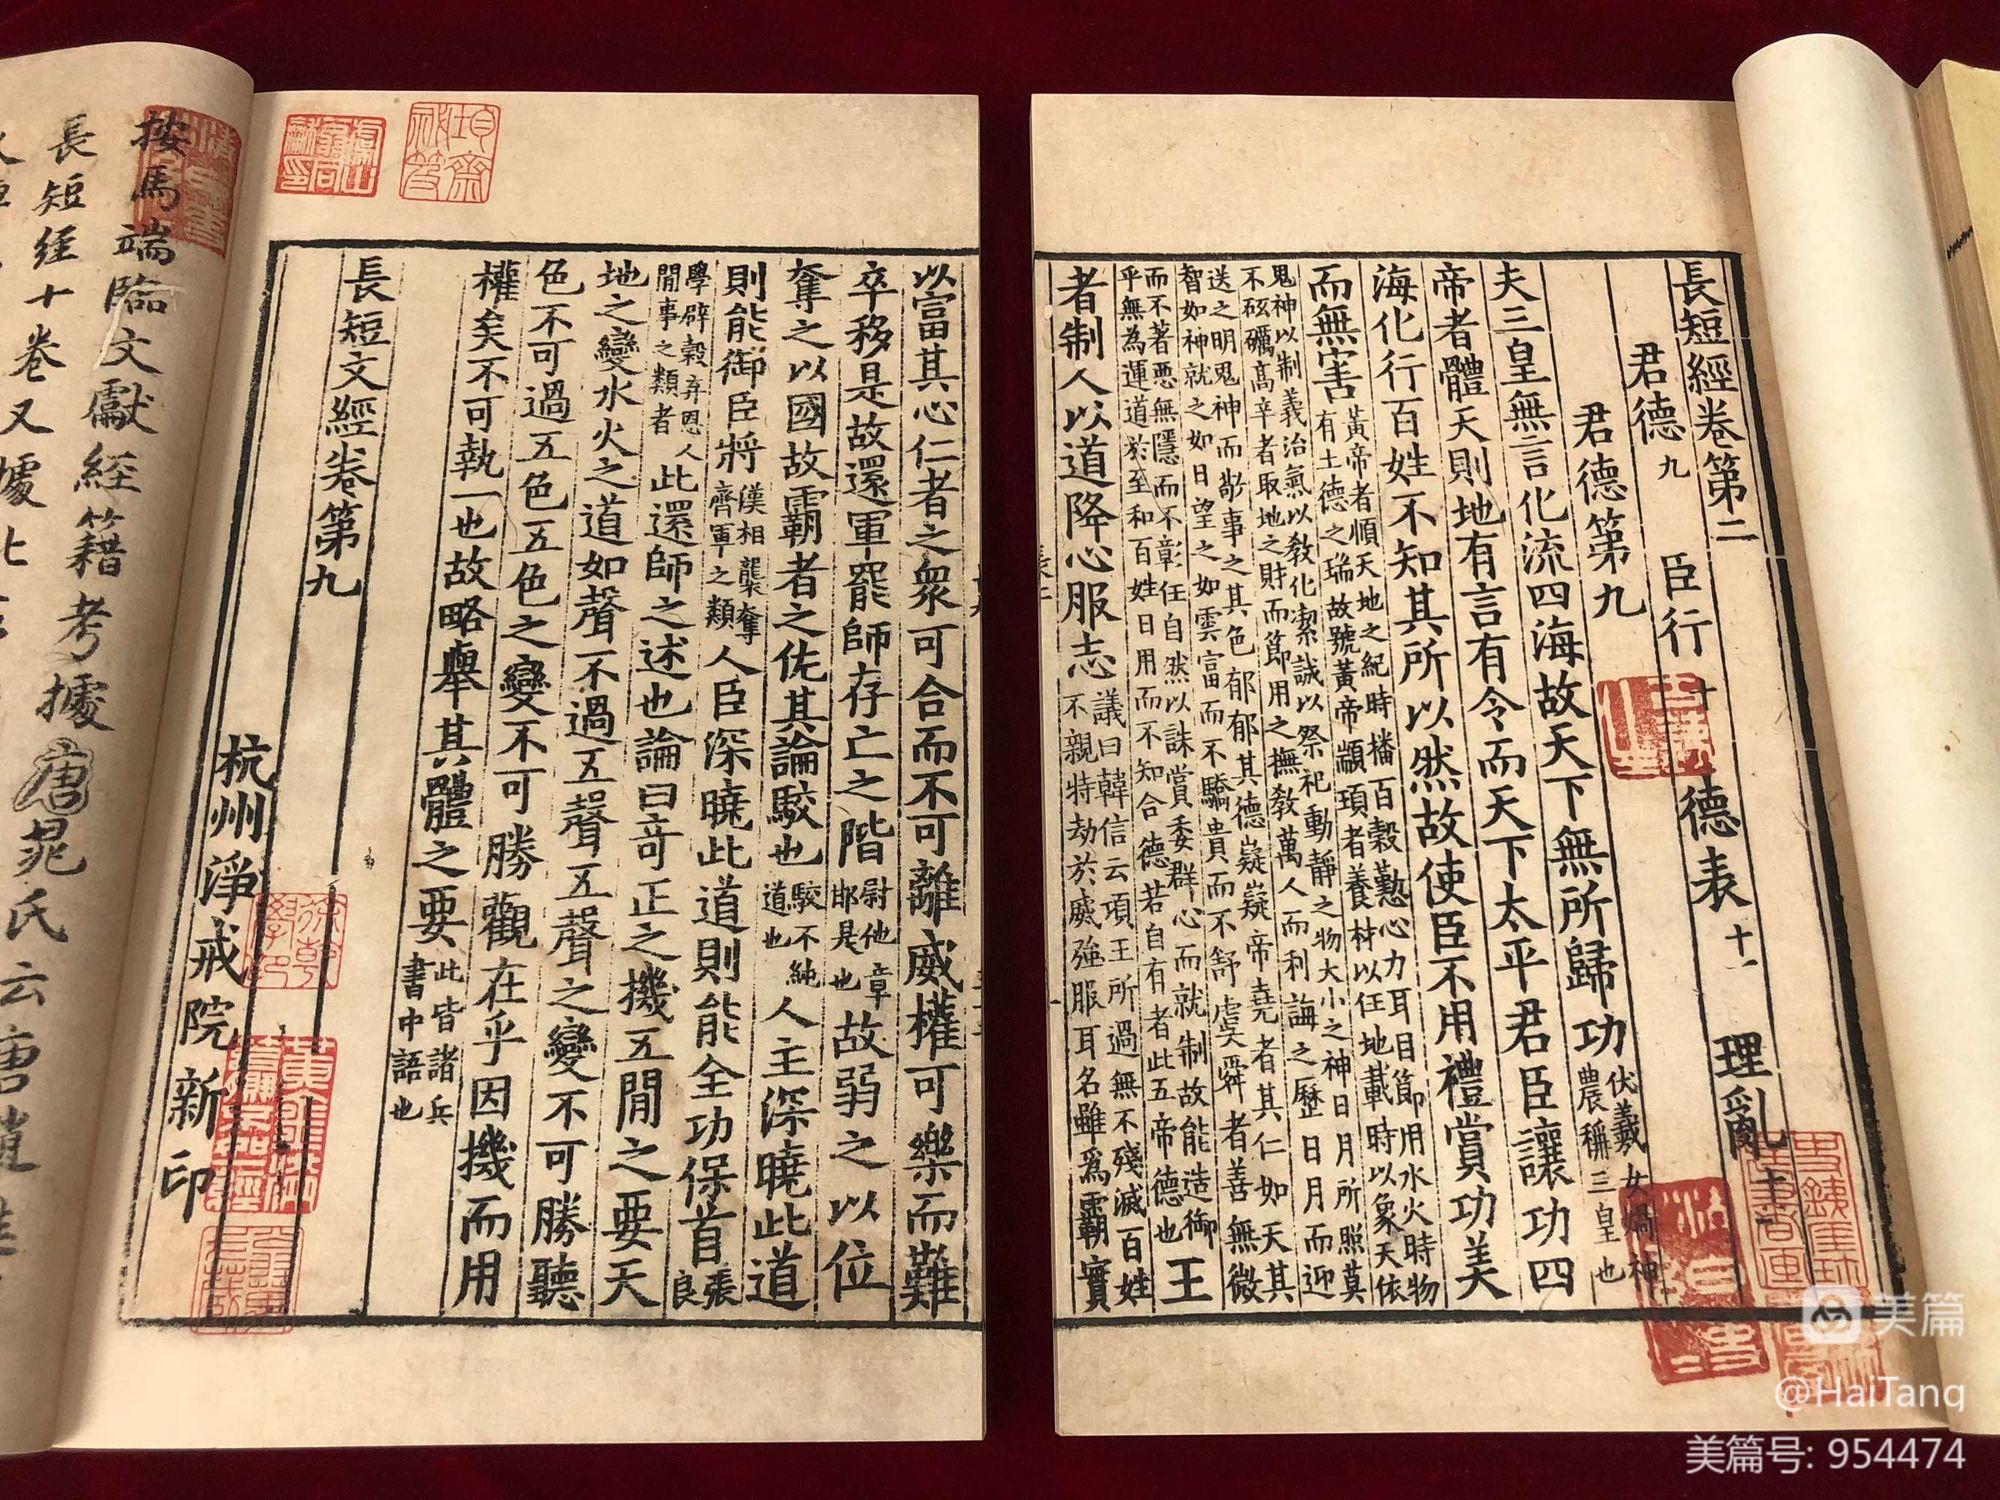 長短經卷第二
君德九 臣行十 德表十一 理亂十二
君德第九
夫三皇無言化流四海故天下無所歸功伏羲女媧神農稱三皇也
帝者體天則地有言有令而天下太平君臣讓功四
海化行百姓不知其所以然故使臣不用禮賞功美
而無害黃帝者順天地之紀時播百穀勤心力耳目節用水火時物有土德之瑞故號黃帝顓頊者養材以任地載時以象天依
鬼神以制義治氣以教化潔誠以祭祀動靜之物大小之神日月所照莫不砥礪高辛者取地之財而節用之撫教萬人而利誨之歷日月而迎
送之明鬼神而敬事之其色郁郁其德嶷嶷帝堯者其仁如天其智如神就之如日望之如雲富而不驕貴而不舒虞舜者善無微
而不著惡無隱而不彰任自然以誅賞委群心而就制故能造御乎無為運道於至和百姓日用而不知合德若自有者此五帝德也王
者制人以道降心服志議曰韓信云項王所過無不殘滅百姓不親特劫於威強服耳名雖爲霸實
以富其心仁者之衆可合而不可離威權可樂而難
卒移是故還軍罷師存亡之階尉他章邯是也故弱之以位
奪之以國故霸者之佐其論駮也駮不純道也人主深曉此道
則能御臣將漢相襲奪齊軍之類人臣深曉此道則能全功保首張良
學辟穀弃恩人閒事之類者此還師之述也論曰奇正之機五閒之要天
地之變水火之道如聲不過五聲五聲之變不可勝聽
色不可過五色五色之變不可勝觀在乎因機而用
權矣不可執一也故略舉其體之要此皆諸兵書中語也
長短文經卷第九
杭州淨戒院新印
按馬端臨文獻經籍考據唐晁氏云唐趙
長短經十卷又據北
美篇
@HaiTanq
美篇号: 954474